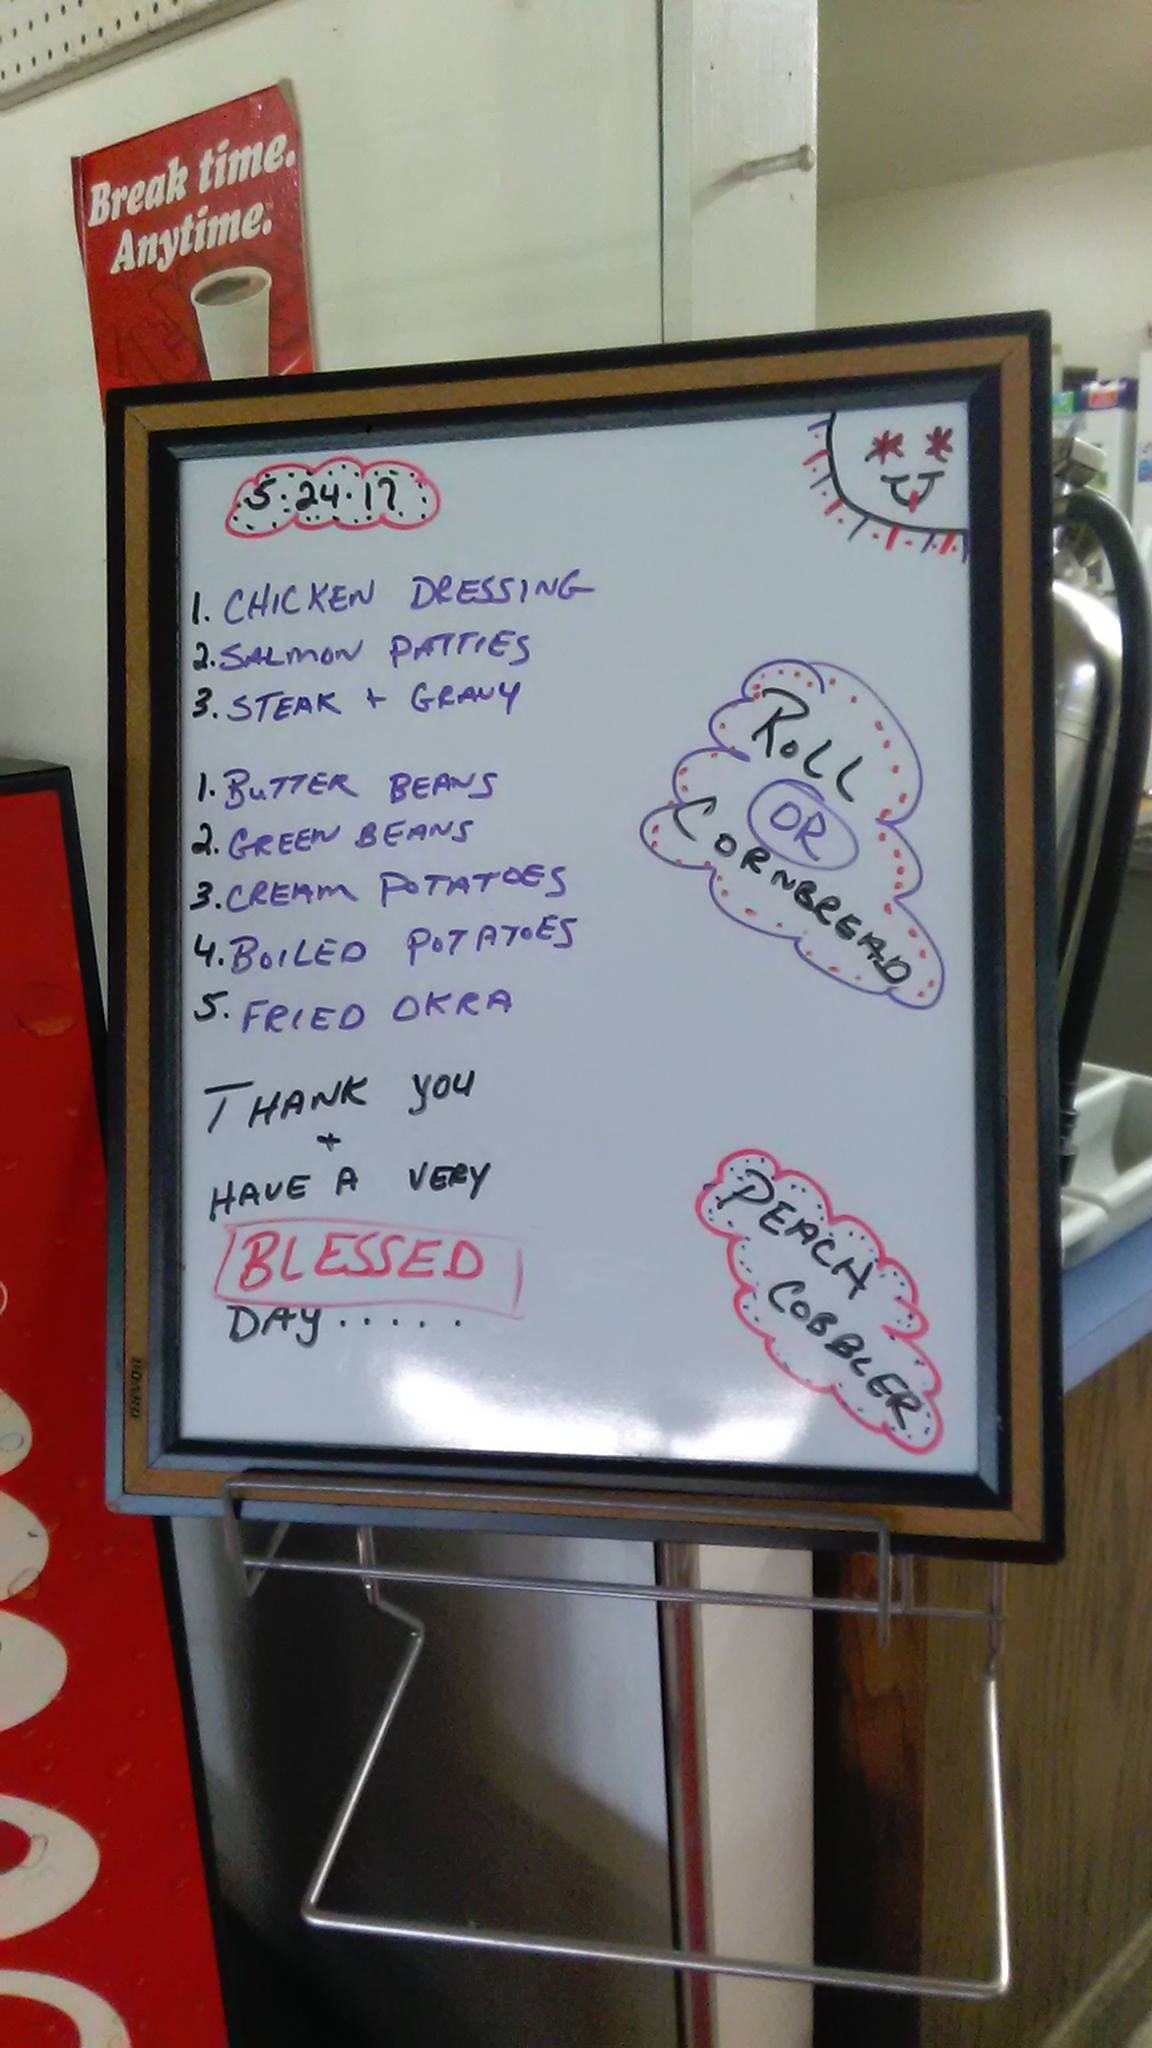 Break time.
Anytime.
5.24.17
1. CHICKEN DRESSING
2. SALMON PATTIES
3. STEAK + GRAVY
1. BUTTER BEANS
2. GREEN BEANS
3. CREAM POTATOES
4. BOILED POTATOES
5. FRIED OKRA
THANK YOU
+
HAVE A VERY
BLESSED
DAY.....
ROLL
OR
CORNBREAD
PEACH
COBBLER